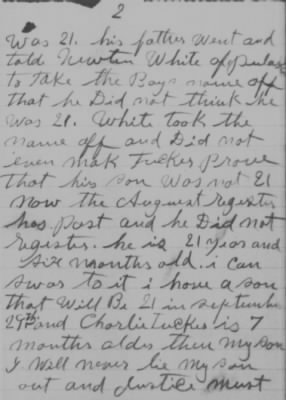 2
Was 21. his father Went and
told Newton White of Pulaski
to Take the Boys name off
that he Did not think he
was 21. White took the
name off and Did not
even mak Tucker Prove
that his son Was not 21
now the August register
has Past and he Did not
register. he is 21 years and
six months old. i can
swar to it i have a son
that Will Be 21 in september
29th and Charlie Tucker is 7
months older then my son
I Will never lie my son
out and Justice must